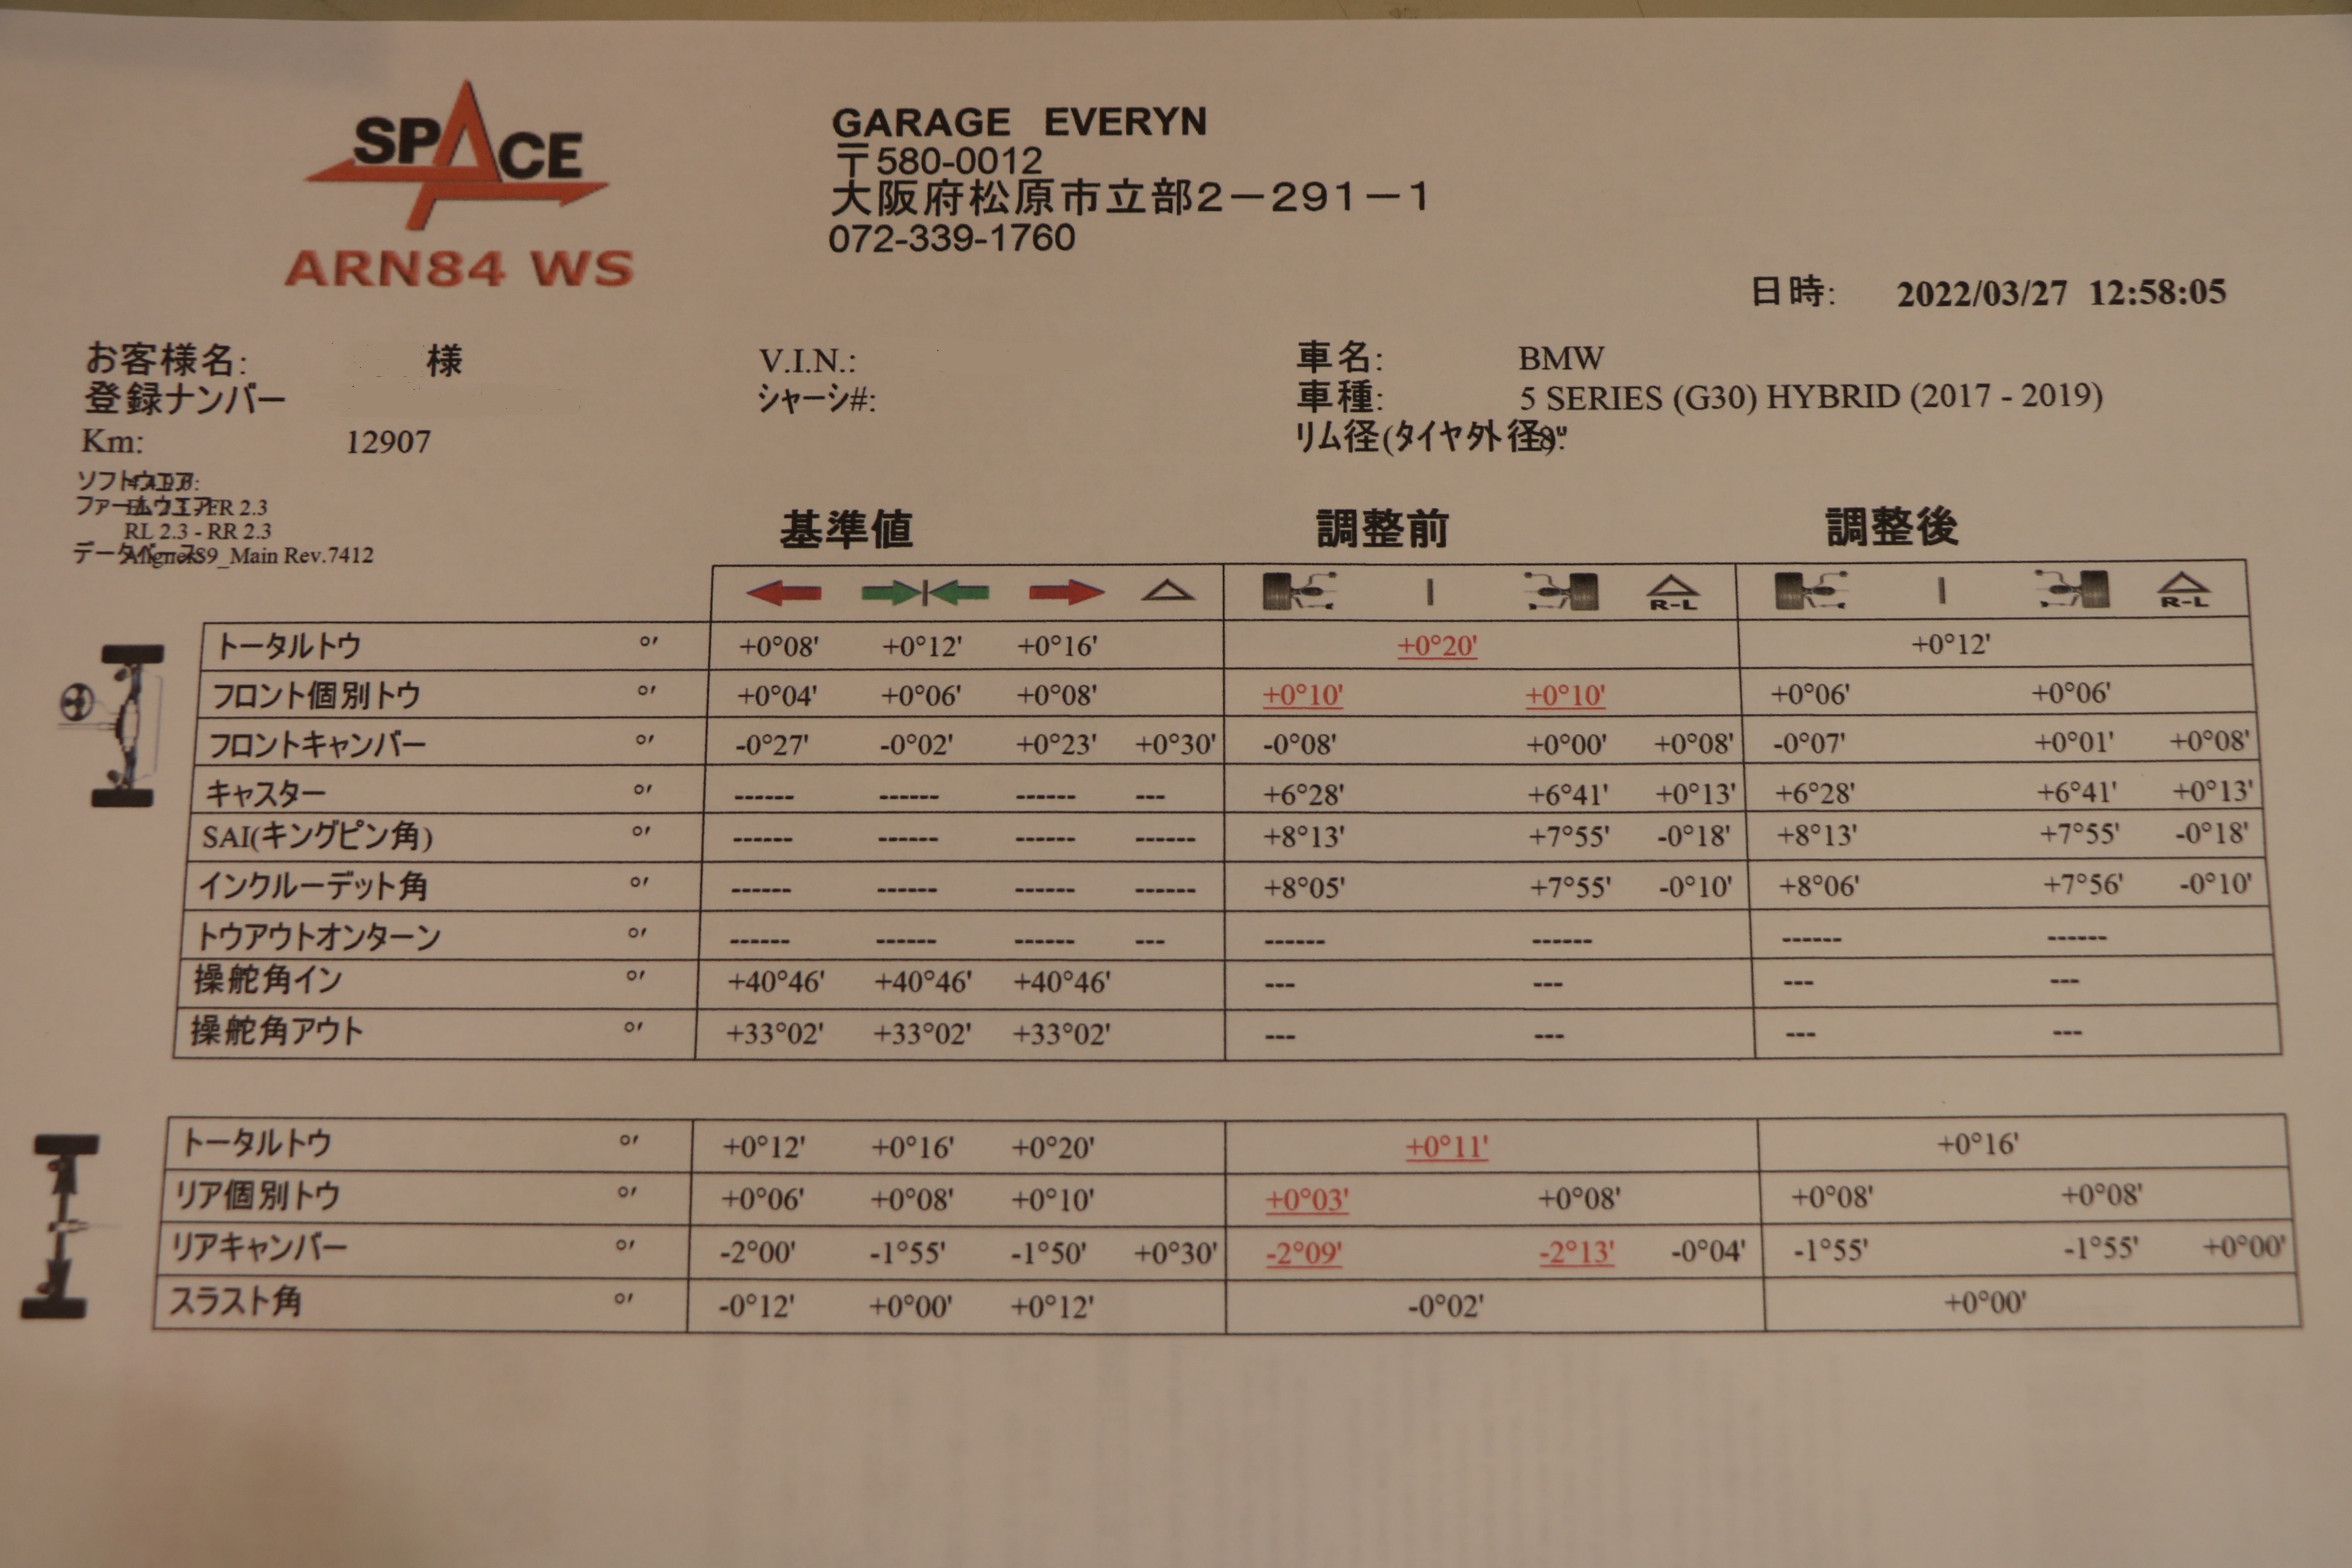 SPACE
ARN84 WS
GARAGE EVERYN
〒580-0012
大阪府松原市立部2－291－1
072-339-1760
日時: 2022/03/27 12:58:05
お客様名: 様 V.I.N.: 車名: BMW
登録ナンバー シャーシ#: 車種: 5 SERIES (G30) HYBRID (2017 - 2019)
Km: 12907 リム径(タイヤ外径)
ソフトウエア:
ファームウエア FR 2.3
RL 2.3 - RR 2.3
データベース Rev.7412
基準値 調整前 調整後
R-L R-L
トータルトウ °' +0°08' +0°12' +0°16' +0°20' +0°12'
フロント個別トウ °' +0°04' +0°06' +0°08' +0°10' +0°10' +0°06' +0°06'
フロントキャンバー °' -0°27' -0°02' +0°23' +0°30' -0°08' +0°00' +0°08' -0°07' +0°01' +0°08'
キャスター °' ------ ------ ------ --- +6°28' +6°41' +0°13' +6°28' +6°41' +0°13'
SAI(キングピン角) °' ------ ------ ------ ------ +8°13' +7°55' -0°18' +8°13' +7°55' -0°18'
インクルーデット角 °' ------ ------ ------ ------ +8°05' +7°55' -0°10' +8°06' +7°56' -0°10'
トウアウトオンターン °' ------ ------ ------ --- ------ ------ ------ ------
操舵角イン °' +40°46' +40°46' +40°46' --- --- --- ---
操舵角アウト °' +33°02' +33°02' +33°02' --- --- --- ---
トータルトウ °' +0°12' +0°16' +0°20' +0°11' +0°16'
リア個別トウ °' +0°06' +0°08' +0°10' +0°03' +0°08' +0°08' +0°08'
リアキャンバー °' -2°00' -1°55' -1°50' +0°30' -2°09' -2°13' -0°04' -1°55' -1°55' +0°00'
スラスト角 °' -0°12' +0°00' +0°12' -0°02' +0°00'